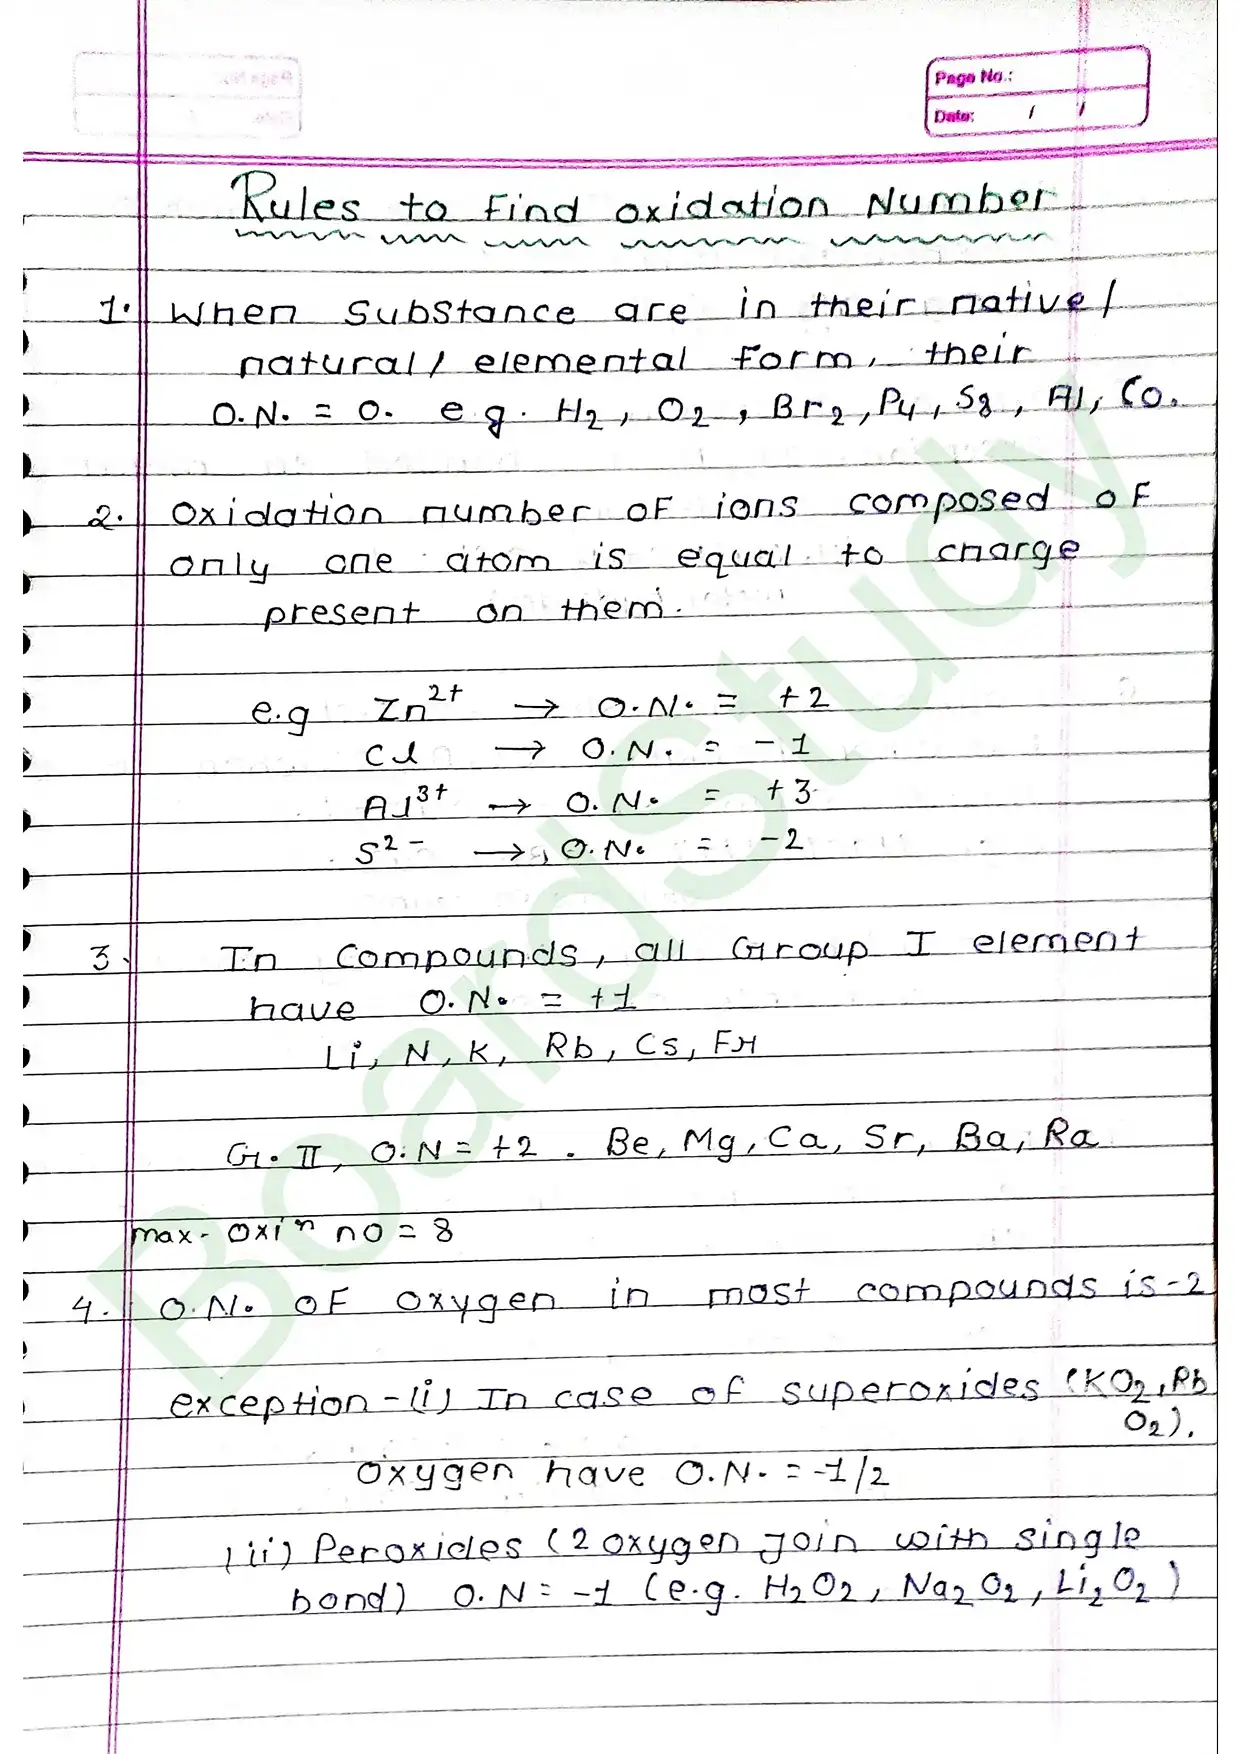 Page No.:
Date: / /
Rules to find oxidation Number
1. When Substance are in their native/
natural/ elemental form, their
O.N. = 0. e.g. H₂, O₂, Br₂, P₄, S₈, Al, Co.
2. Oxidation number of ions composed of
only one atom is equal to charge
present on them.
e.g Zn²⁺ → O.N. = +2
Cl → O.N. = -1
Al³⁺ → O.N. = +3
S²⁻ → O.N. = -2
3. In Compounds, all Group I element
have O.N. = +1
Li, N, K, Rb, Cs, Fr
Gr. II, O.N = +2. Be, Mg, Ca, Sr, Ba, Ra
max- oxiⁿ no = 8
4. O.N. of oxygen in most compounds is -2
exception - (i) In case of superoxides (KO₂, Rb
O₂).
Oxygen have O.N. = -1/2
(ii) Peroxides (2 oxygen join with single
bond) O.N = -1 (e.g. H₂O₂, Na₂O₂, Li₂O₂)
BoardStudy